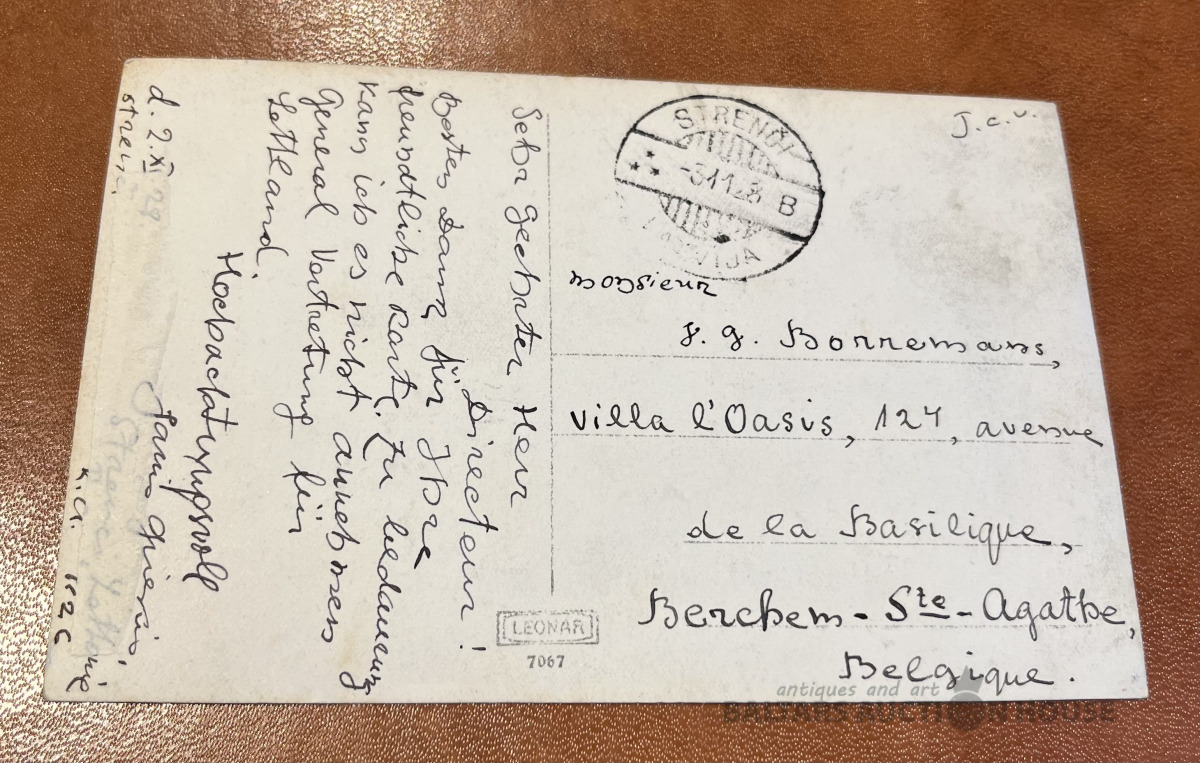 J.c.v.
STRENČI
-3 11 28 B
LATVIJA
monsieur
J. G. Borremans,
villa l'Oasis, 127, avenue
de la Basilique,
Berchem-Ste-Agathe,
Belgique.
Sehr geehrter Herr
Directeur!
Besten Dank für Ihre
freundtliche Karte. Zu bedauern
kann ich es nicht annehmen
General Vertretung für
Lettland.
Hochachtungsvoll
d. 2.XI
LEONAR
7067
antiques and art
BALTARS AUCTION HOUSE